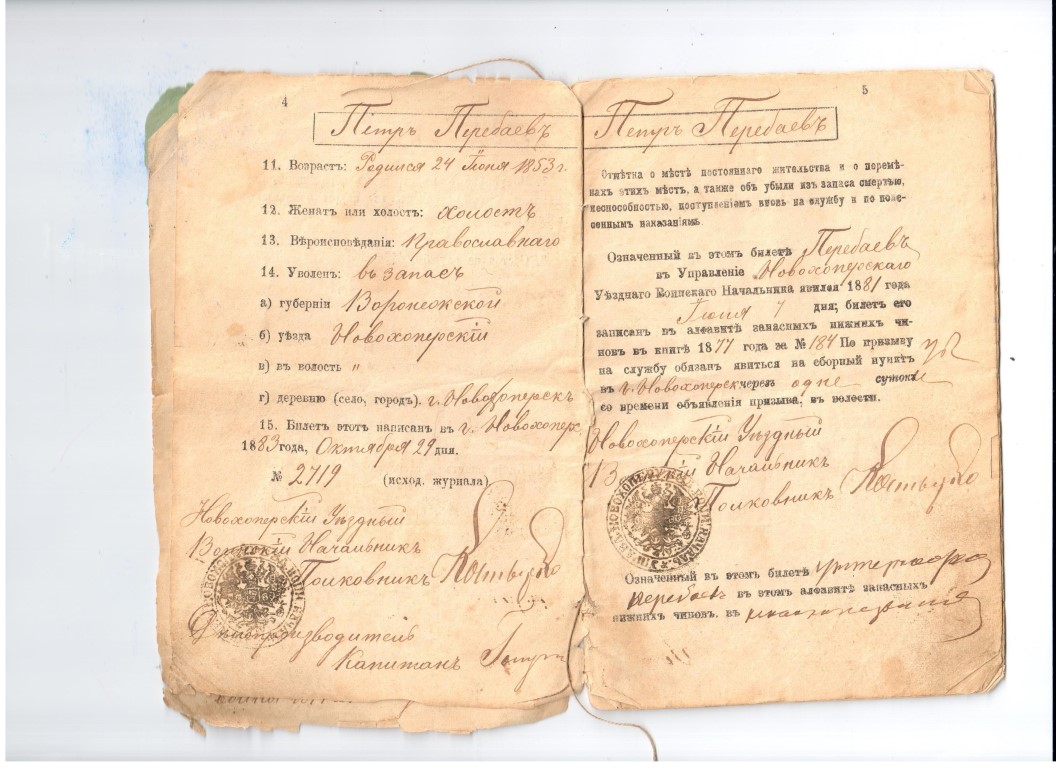 4
Петръ Перебаевъ
11. Возрастъ: Родился 24 Iюня 1853 г.
12. Женатъ или холостъ: холостъ
13. Вѣроисповѣданія: Православнаго
14. Уволенъ: въ запасъ
а) губерніи Воронежской
б) уѣзда Новохоперскій
в) въ волость "
г) деревню (село, городъ). г. Новохоперскъ
15. Билетъ этотъ написанъ въ г. Новохопер.
1883 года, Октября 29 дня.
№ 2719 (исход. журнала)
Новохоперскій Уѣздный
Воинскій Начальникъ
Полковникъ
Дѣлопроизводитель
Капитанъ
5
Петръ Перебаевъ
Отмѣтка о мѣстѣ постояннаго жительства и о перемѣ-
нахъ этихъ мѣстъ, а также объ убыли изъ запаса смертью,
неспособностью, поступленіемъ вновь на службу и по поне-
сеннымъ наказаніямъ.
Означенный въ этомъ билетѣ Перебаевъ
въ Управленіе Новохоперскаго
Уѣзднаго Воинскаго Начальника явился 1881 года
Iюня 7 дня; билетъ его
записанъ въ алфавитѣ запасныхъ нижнихъ чи-
новъ въ книгѣ 1877 года за № 184 По призыву
на службу обязанъ явиться на сборный пунктъ
въ г. Новохоперскъ черезъ одне сутокъ
со времени объявленія призыва, въ волости.
Новохоперскій Уѣздный
Начальникъ
Полковникъ
Означенный въ этомъ билетѣ
Перебаевъ въ этомъ алфавитѣ запасныхъ
нижнихъ чиновъ. въ